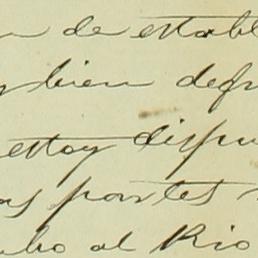 n de establ
y bien defi
estoy dispu
os pontes
cho al Rio